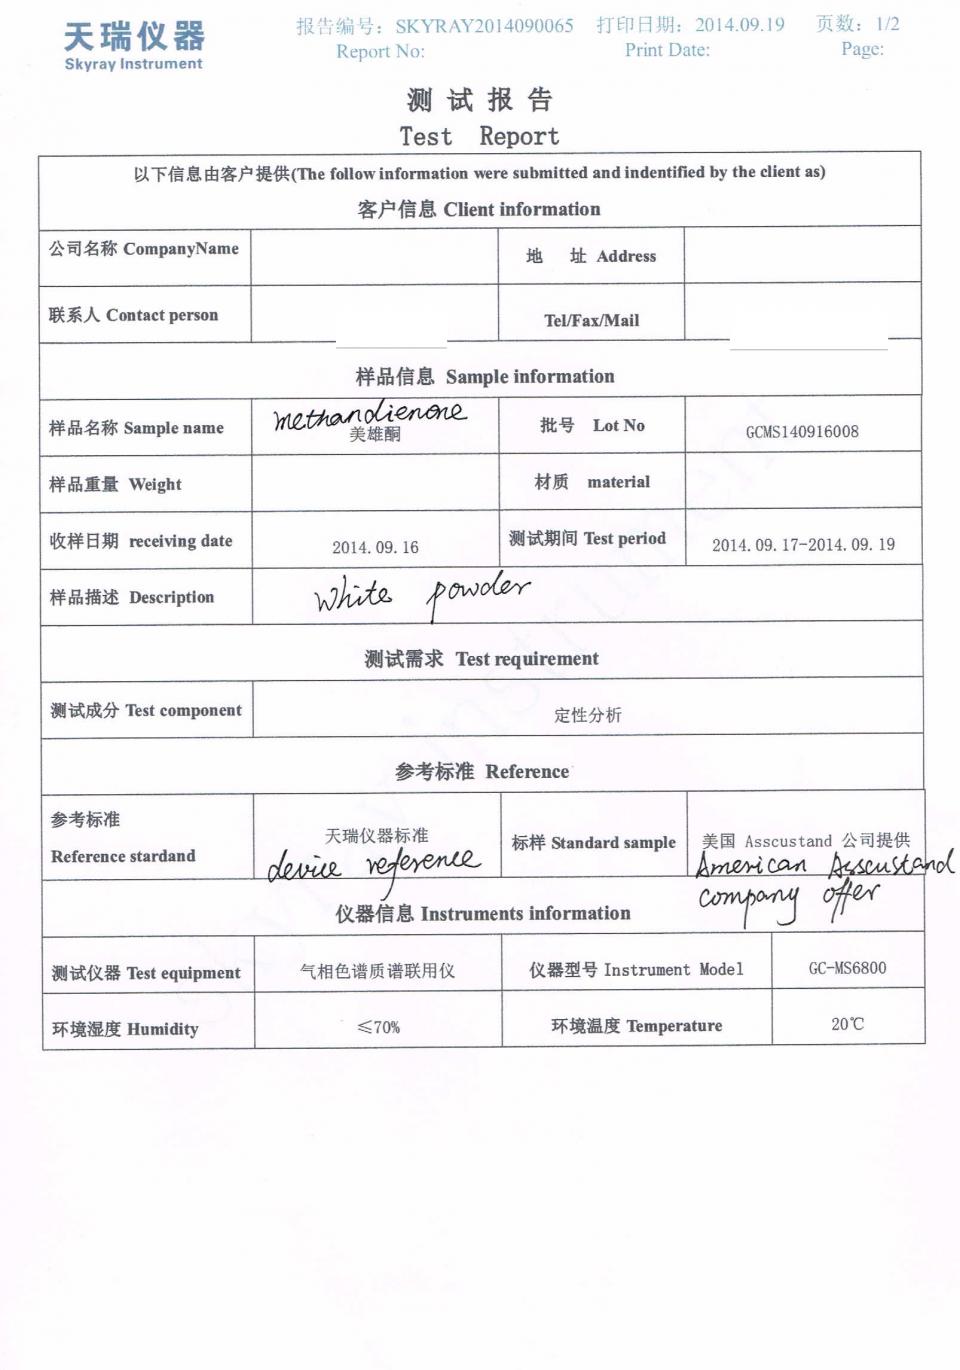 天瑞仪器
Skyray Instrument
报告编号: SKYRAY2014090065 打印日期: 2014.09.19 页数: 1/2
Report No: Print Date: Page:
测试报告
Test Report
以下信息由客户提供(The follow information were submitted and indentified by the client as)
客户信息 Client information
公司名称 CompanyName 地 址 Address
联系人 Contact person Tel/Fax/Mail
样品信息 Sample information
methandienone
样品名称 Sample name 美雄酮 批号 Lot No GCMS140916008
样品重量 Weight 材质 material
收样日期 receiving date 2014.09.16 测试期间 Test period 2014.09.17-2014.09.19
样品描述 Description white powder
测试需求 Test requirement
测试成分 Test component 定性分析
参考标准 Reference
参考标准
Reference stardand
天瑞仪器标准
device reference
标样 Standard sample
美国 Asscustand 公司提供
American Asscustand
company offer
仪器信息 Instruments information
测试仪器 Test equipment 气相色谱质谱联用仪 仪器型号 Instrument Model GC-MS6800
环境湿度 Humidity ≤70% 环境温度 Temperature 20℃